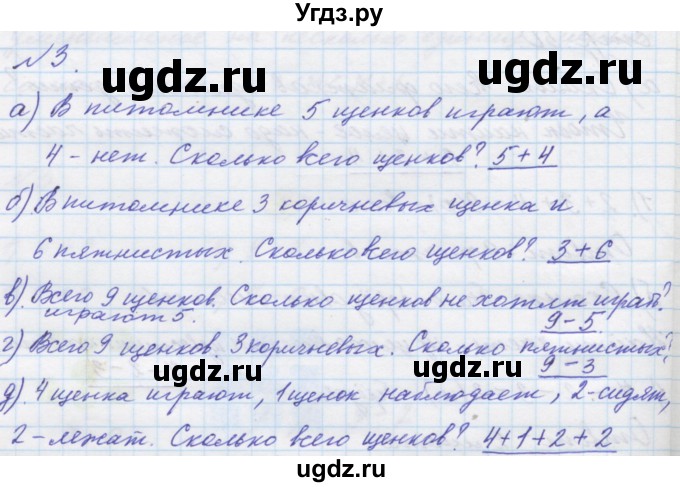 Угдз.ру
№3.
а) В питомнике 5 щенков играют, а
4 - нет. Сколько всего щенков? 5+4
б) В питомнике 3 коричневых щенка и
6 пятнистых. Сколько всего щенков? 3+6
в). Всего 9 щенков. Сколько щенков не хотят играт?
играют 5. 9-5
г) Всего 9 щенков. 3 коричневых. Сколько пятнистых?
9-3
д). 4 щенка играют, 1 щенок наблюдает, 2-сидят,
2-лежат. Сколько всего щенков? 4+1+2+2
ugdz.ru ugdz.ru
ugdz.ru ugdz.ru
ugdz.ru ugdz.ru
ugdz.ru ugdz.ru
ugdz.ru